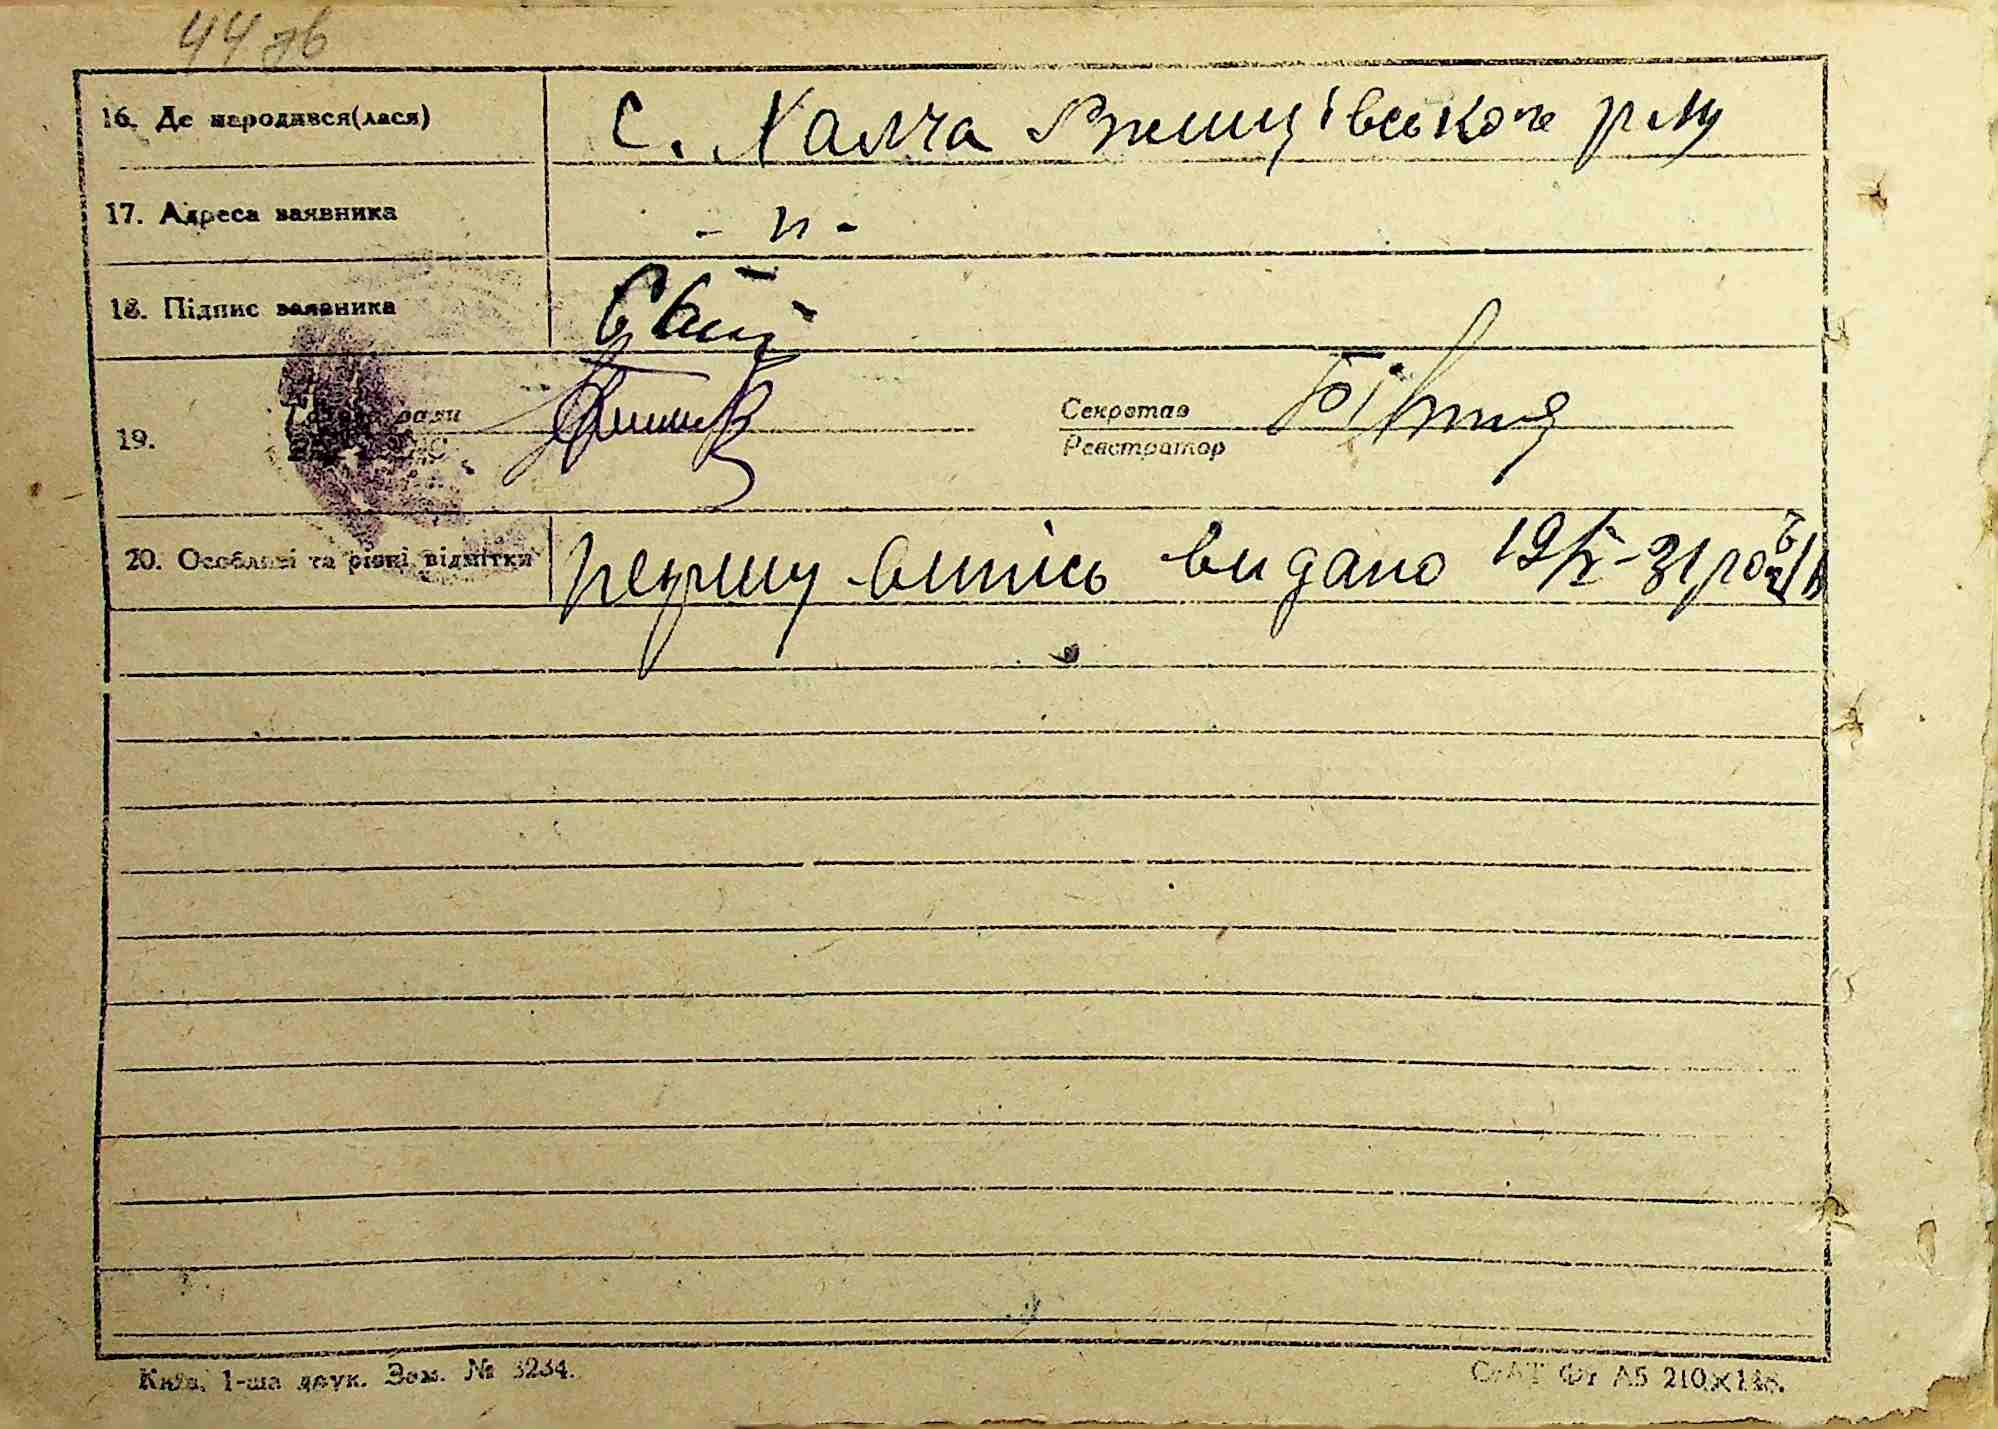 44 зв
16. Де народився(лася) с. Халча Ржищівського р-ну
17. Адреса заявника - и -
18. Підпис заявника
19. Голова ради
Секретар
Реєстратор
20. Особливі та різні відмітки першу випись видано 19/X-31 року
Київ. 1-ша друк. Зам. № 3234.
Фт А5 210×148.